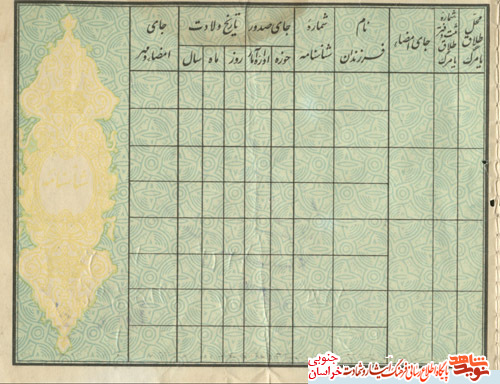 محل طلاق یا مرگ
شماره ثبت دفتر طلاق یا مرگ
جای امضاء
نام فرزندان
شمارهٔ شناسنامه
جای صدور
حوزه
تاریخ ولادت
روز
ماه
سال
جای امضاء و مهر
نوید شاهد
پایگاه اطلاع رسانی فرهنگ ایثار و شهادت
خراسان جنوبی